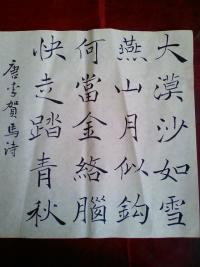 大漠沙如雪
燕山月似鈎
何當金絡腦
快走踏青秋
唐李賀馬诗